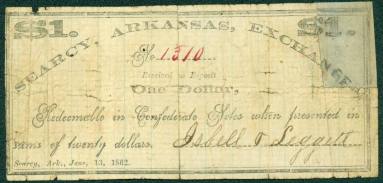 $1. $1.
SEARCY, ARKANSAS, EXCHANGE
No. 1310
Received on Deposit
One Dollar,
Redeemable in Confederate Notes when presented in
sums of twenty dollars. Isbell & Leggett
Searcy, Ark., June, 13, 1862.